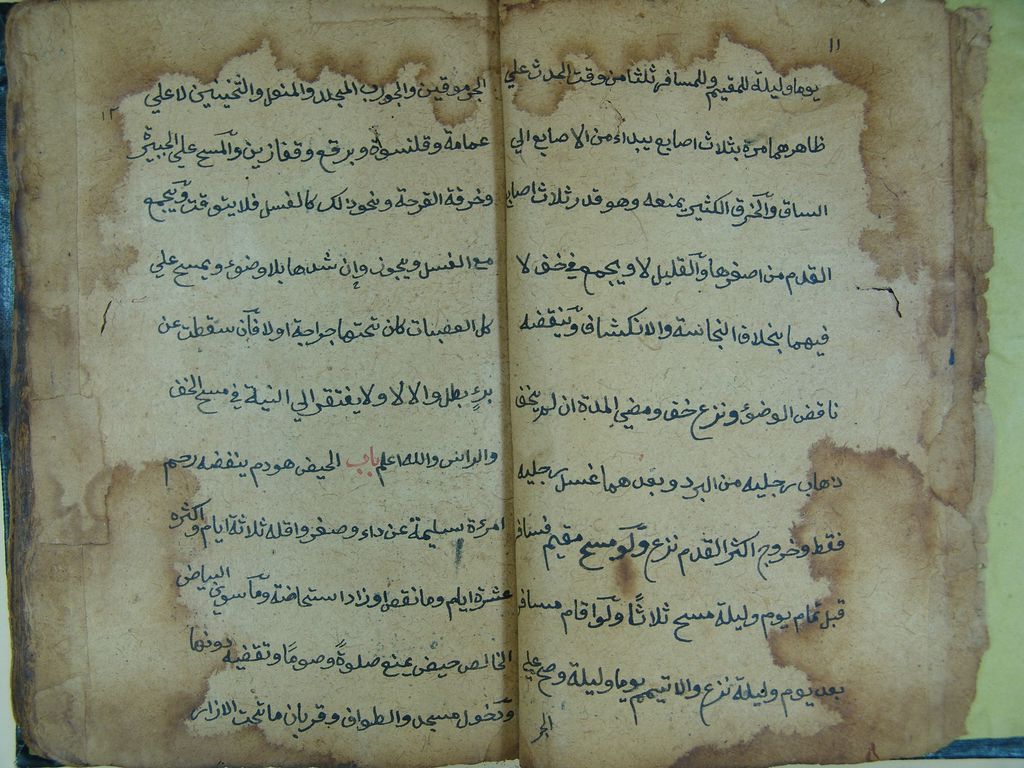 ١١
يوما وليلة للمقيم وللمسافر ثلثا من وقت الحدث علي
ظاهرهما مرة بثلاث اصابع يبداء من الاصابع الي
الساق والخرق الكثير يمنعه وهو قدر ثلاث اصابع
القدم من اصغرها والقليل لا ويجمع في خف لا
فيهما بخلاف النجاسة والانكشاف وينقضه
ناقض الوضوء ونزع خف ومضي المدة ان لم يخف
ذهاب رجليه من البرد وبعدهما غسل رجليه
فقط وخروج اكثر القدم نزع ولو مسح مقيم فسافر
قبل تمام يوم وليلة مسح ثلاثا ولو اقام مسافر
بعد يوم وليلة نزع والا تيمم يوما وليلة وصح علي
الجر
١٢
الجرموقين والجورب المجلد والمنعل والثخينين لا علي
عمامة وقلنسوة وبرقع وقفازين والمسح علي الجبيرة
وخرقة القرحة ونحو ذلك كالغسل فلا يتوقت ويجمع
مع الغسل ويجوز وإن شدها بلا وضوء ويمسح علي
كل العصبات كان تحتها جراحة اولا فان سقطت عن
برء بطل والا لا ولا يفتقر الي النية في مسح الخف
والراس والله اعلم باب الحيض هو دم ينفضه رحم
امرءة سليمة عن داء وصغر واقله ثلاثة ايام واكثره
عشرة ايام وما نقص او زاد استحاضة وما سوي البياض
الخالص حيض يمنع صلوة وصوما وتقضيه دونها
ودخول مسجد والطواف وقربان ما تحت الازار